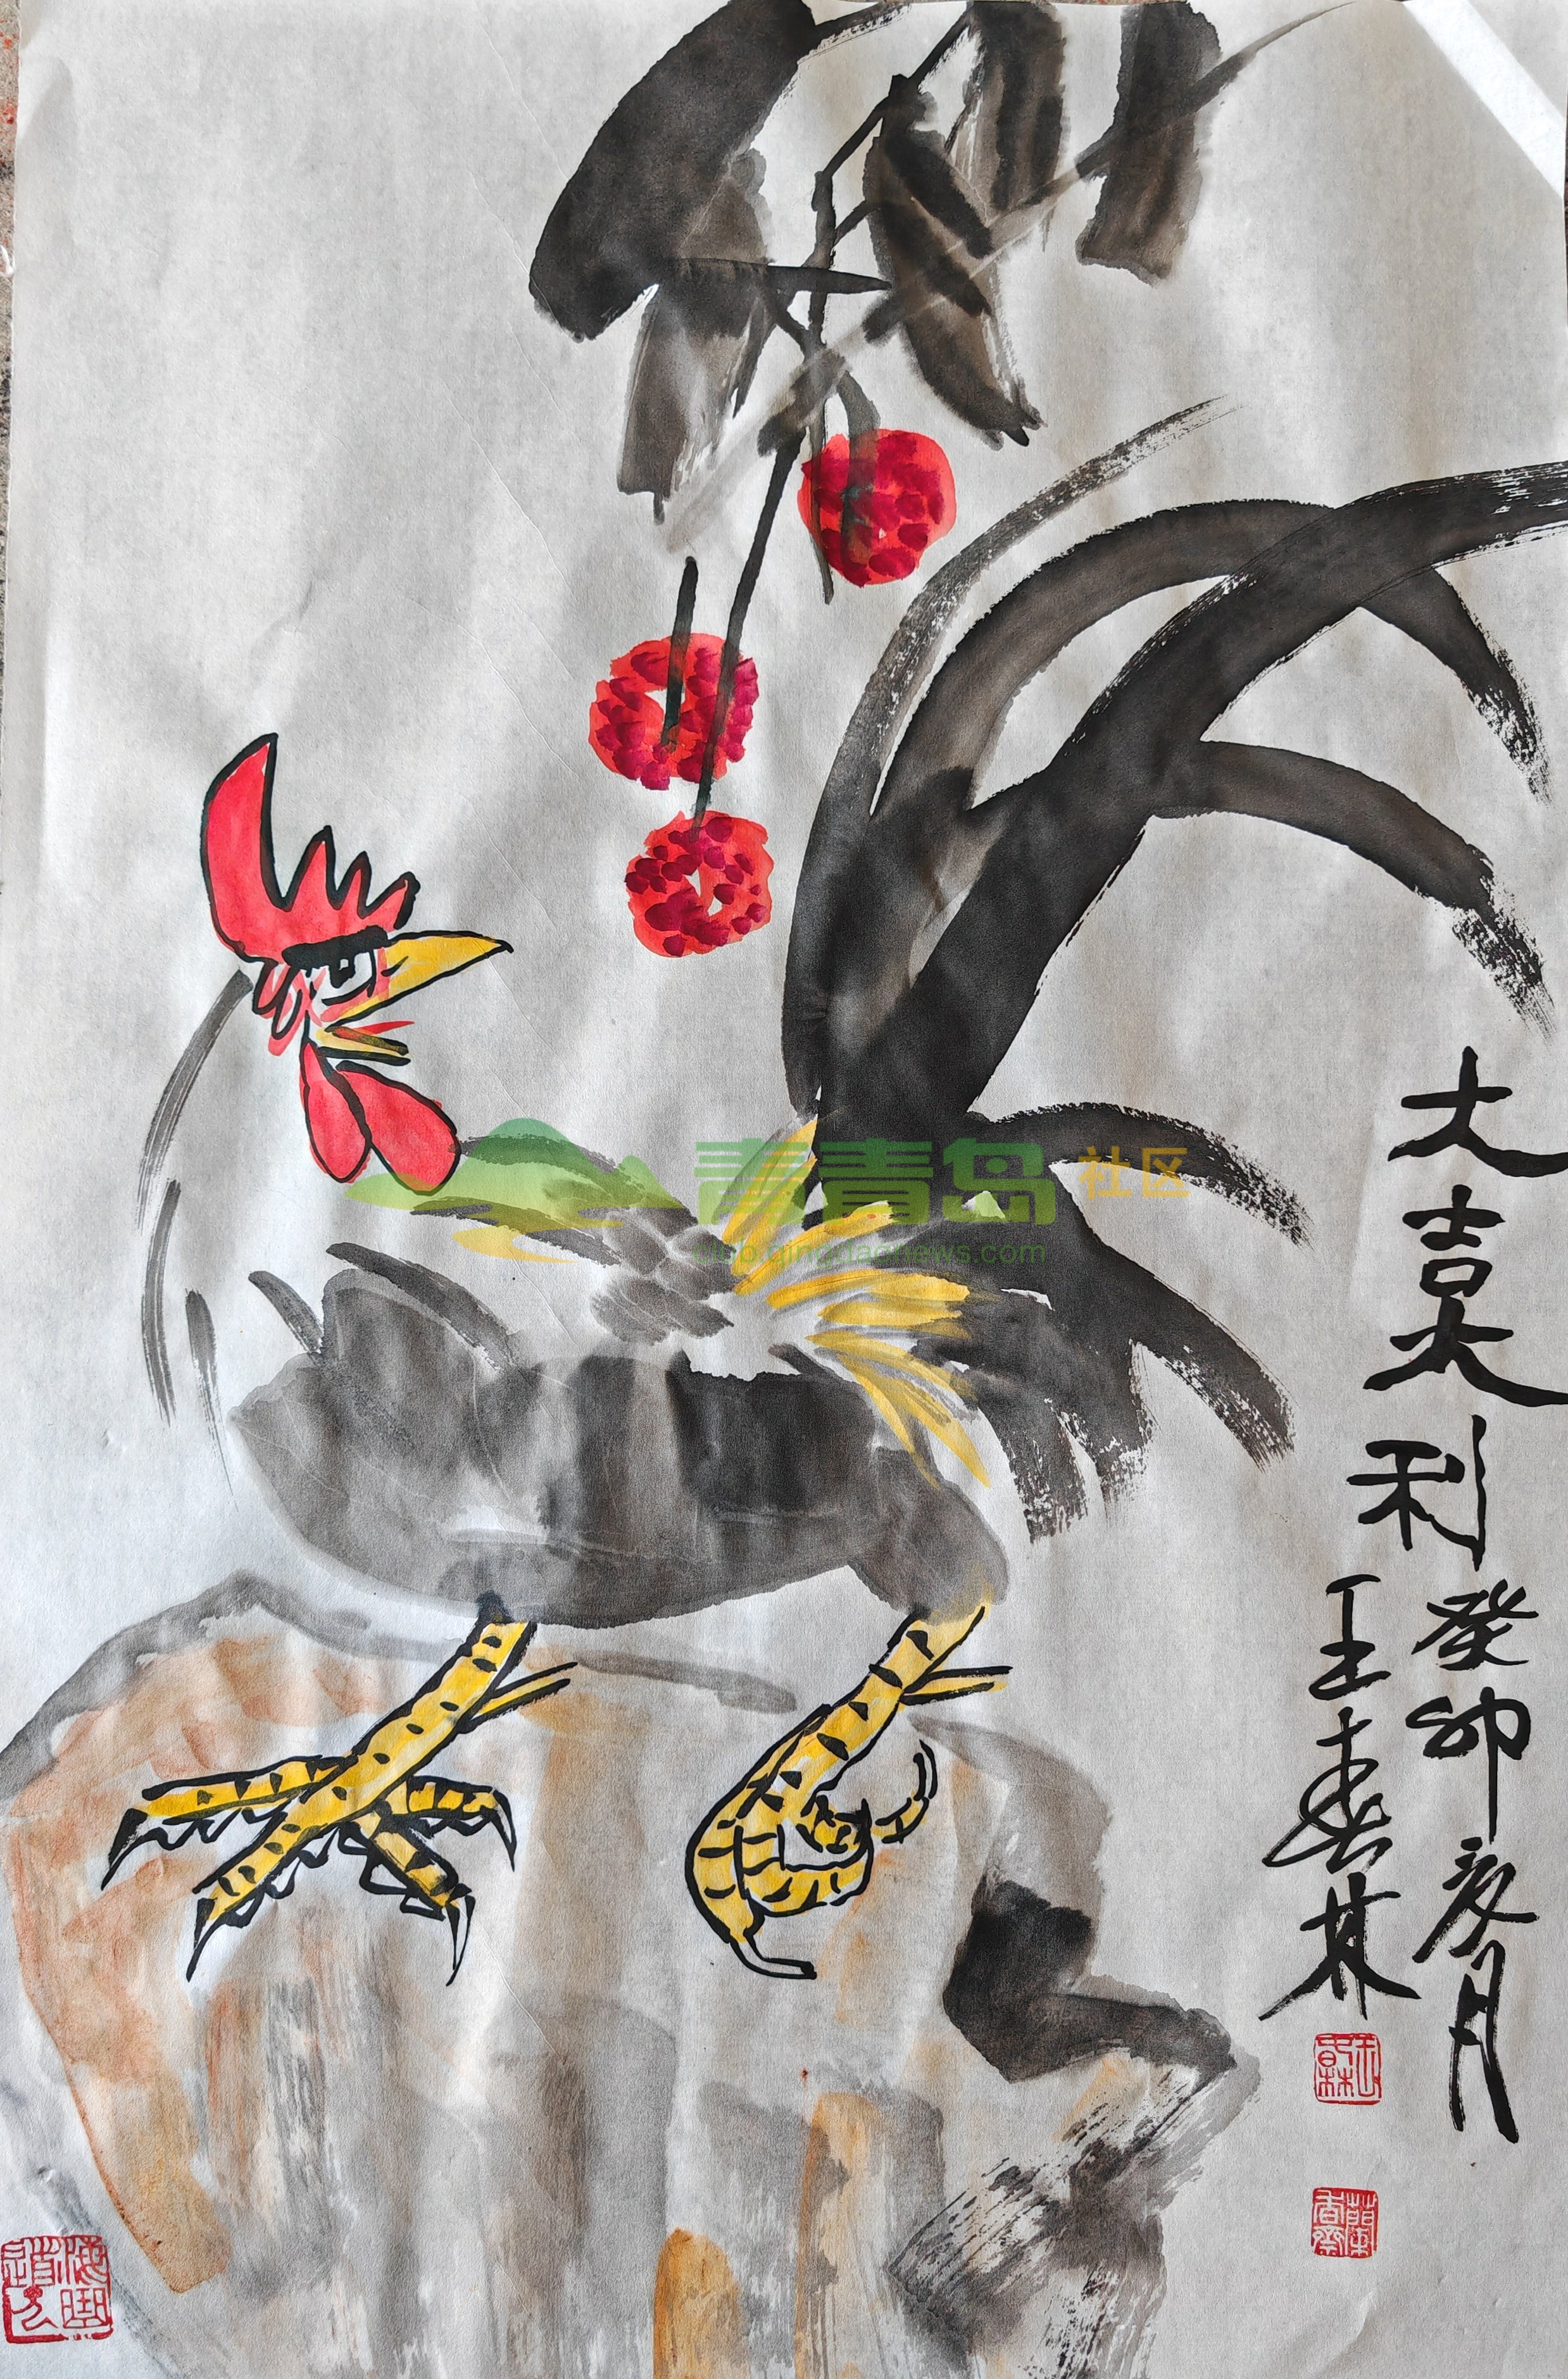 大吉大利
癸卯亥月
王春林
青青岛社区
club.qingdaonews.com